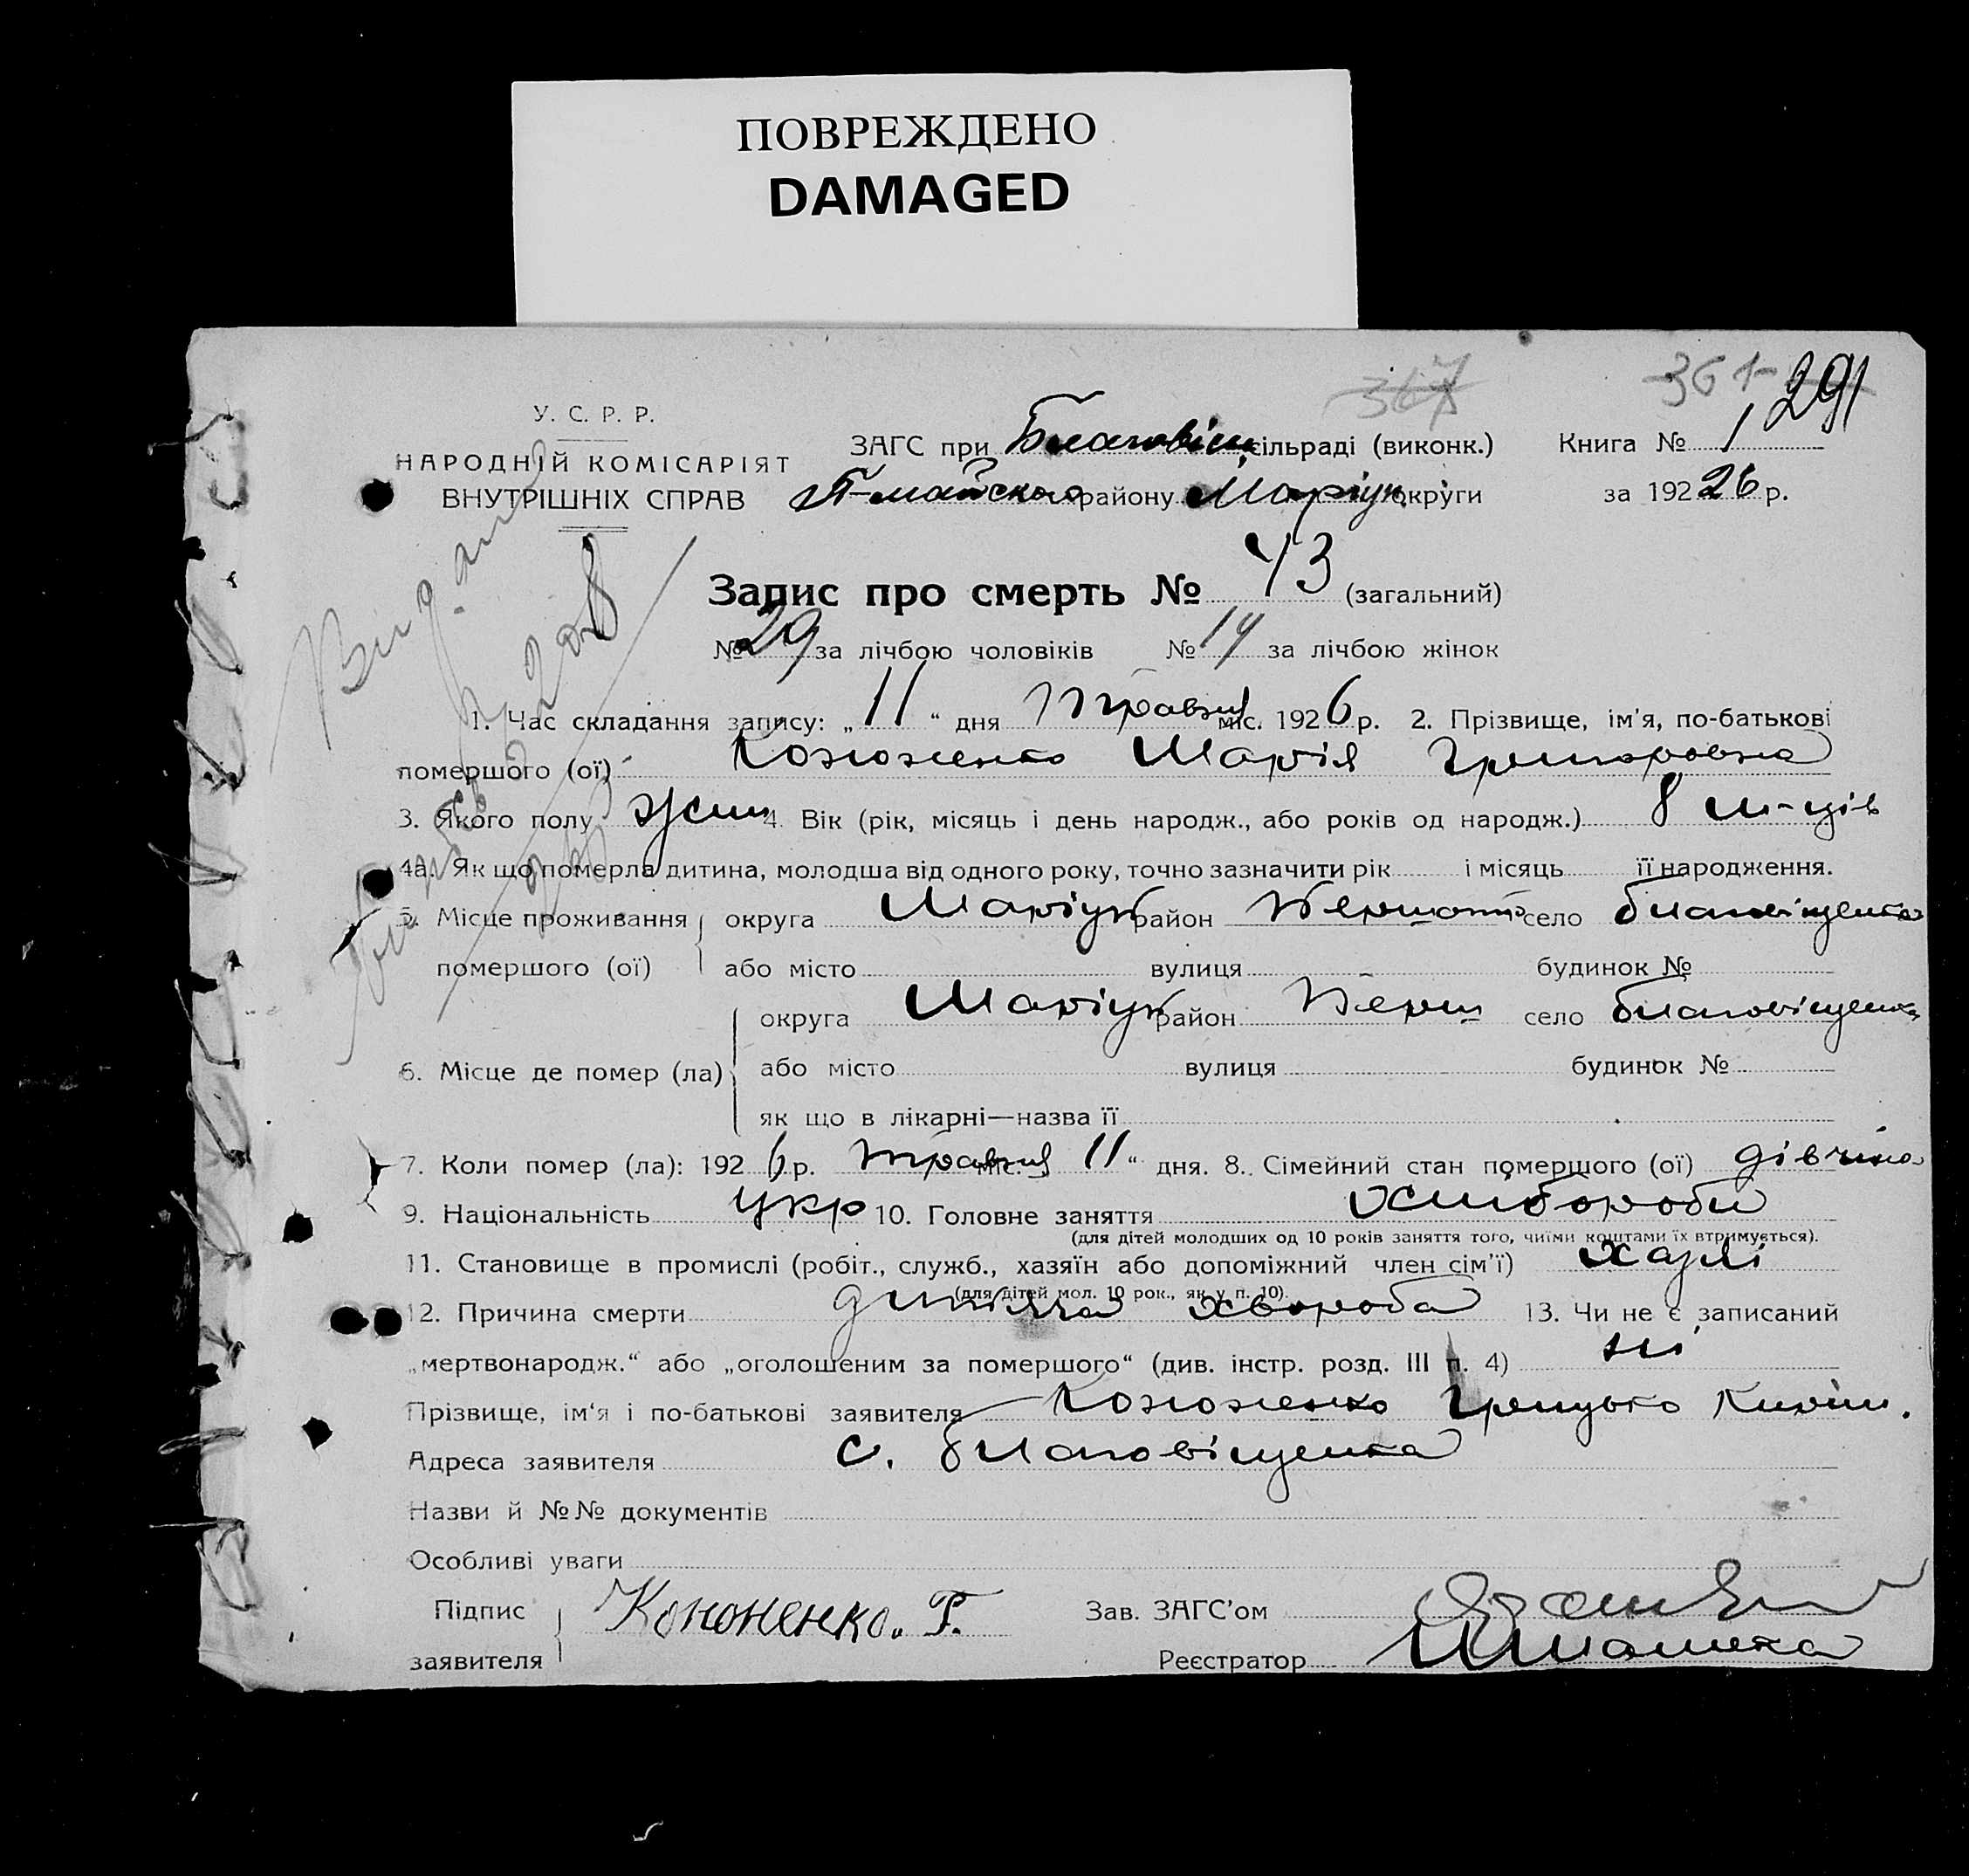 ПОВРЕЖДЕНО
DAMAGED
367
361
291
У. С. Р. Р.
НАРОДНІЙ КОМІСАРІЯТ
ВНУТРІШНІХ СПРАВ
ЗАГС при Благовіщ. сільраді (виконк.) Книга № 1
П-майского району Маріуп. округи за 192 26 р.
Запис про смерть № 43 (загальний)
№ 29 за лічбою чоловіків № 14 за лічбою жінок
1. Час складання запису: „ 11 “ дня Травня міс. 192 6 р. 2. Прізвище, ім'я, по-батькові
помершого (ої) Кононенко Марія Григоровна
3. Якого полу жін 4. Вік (рік, місяць і день народж., або років од народж.) 8 м-ців
4а. Як що померла дитина, молодша від одного року, точно зазначити рік і місяць її народження.
5. Місце проживання округа Маріуп район село благовіщенка
помершого (ої) або місто вулиця будинок №
округа Маріуп район Перш село благовіщенка
6. Місце де помер (ла) або місто вулиця будинок №
як що в лікарні—назва її
7. Коли помер (ла): 192 6 р. травня міс. 11 “ дня. 8. Сімейний стан помершого (ої) дівчина
9. Національність укр 10. Головне заняття хліборобы
(для дітей молодших од 10 років заняття того, чиїми коштами їх втримується).
11. Становище в промислі (робіт., служб., хазяїн або допоміжний член сім'ї)
(для дітей мол. 10 рок., як у п. 10).
12. Причина смерти дитяча хвороба 13. Чи не є записаний
„мертвонародж.“ або „оголошеним за помершого“ (див. інстр. розд. III п. 4) ні
Прізвище, ім'я і по-батькові заявителя Кононенко Грицько
Адреса заявителя с. благовіщенка
Назви й №№ документів
Особливі уваги
Підпис
заявителя Кононенко. Г.
Зав. ЗАГС'ом
Реєстратор